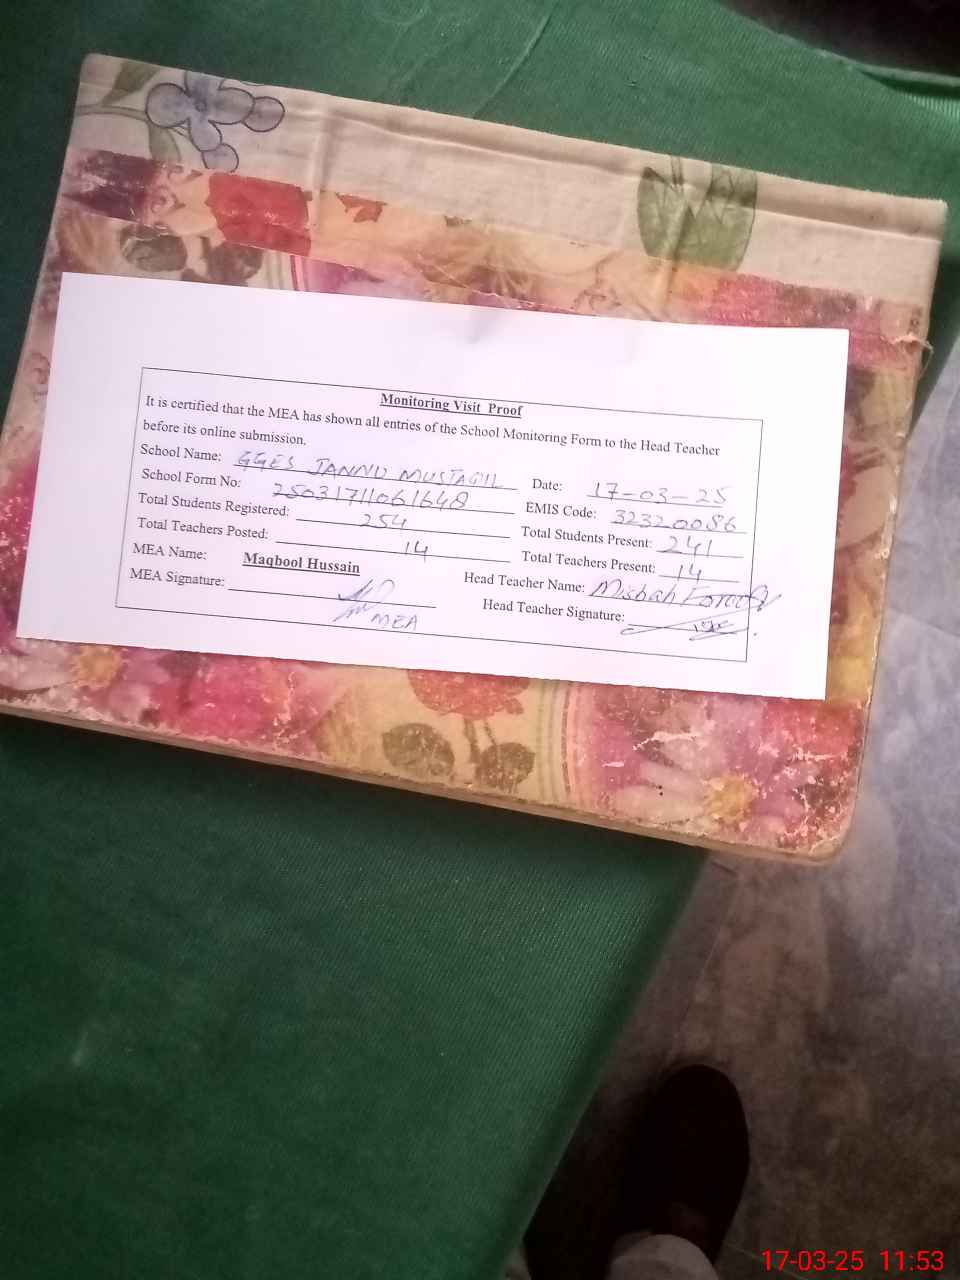 Monitoring Visit Proof
It is certified that the MEA has shown all entries of the School Monitoring Form to the Head Teacher
before its online submission.
School Name: GGES JANNU MUSTAQIL Date: 17-03-25
School Form No: 25031711061648 EMIS Code: 32320086
Total Students Registered: 254 Total Students Present: 241
Total Teachers Posted: 14 Total Teachers Present: 14
MEA Name: Maqbool Hussain Head Teacher Name: Misbah
MEA Signature: Head Teacher Signature:
MEA
17-03-25 11:53